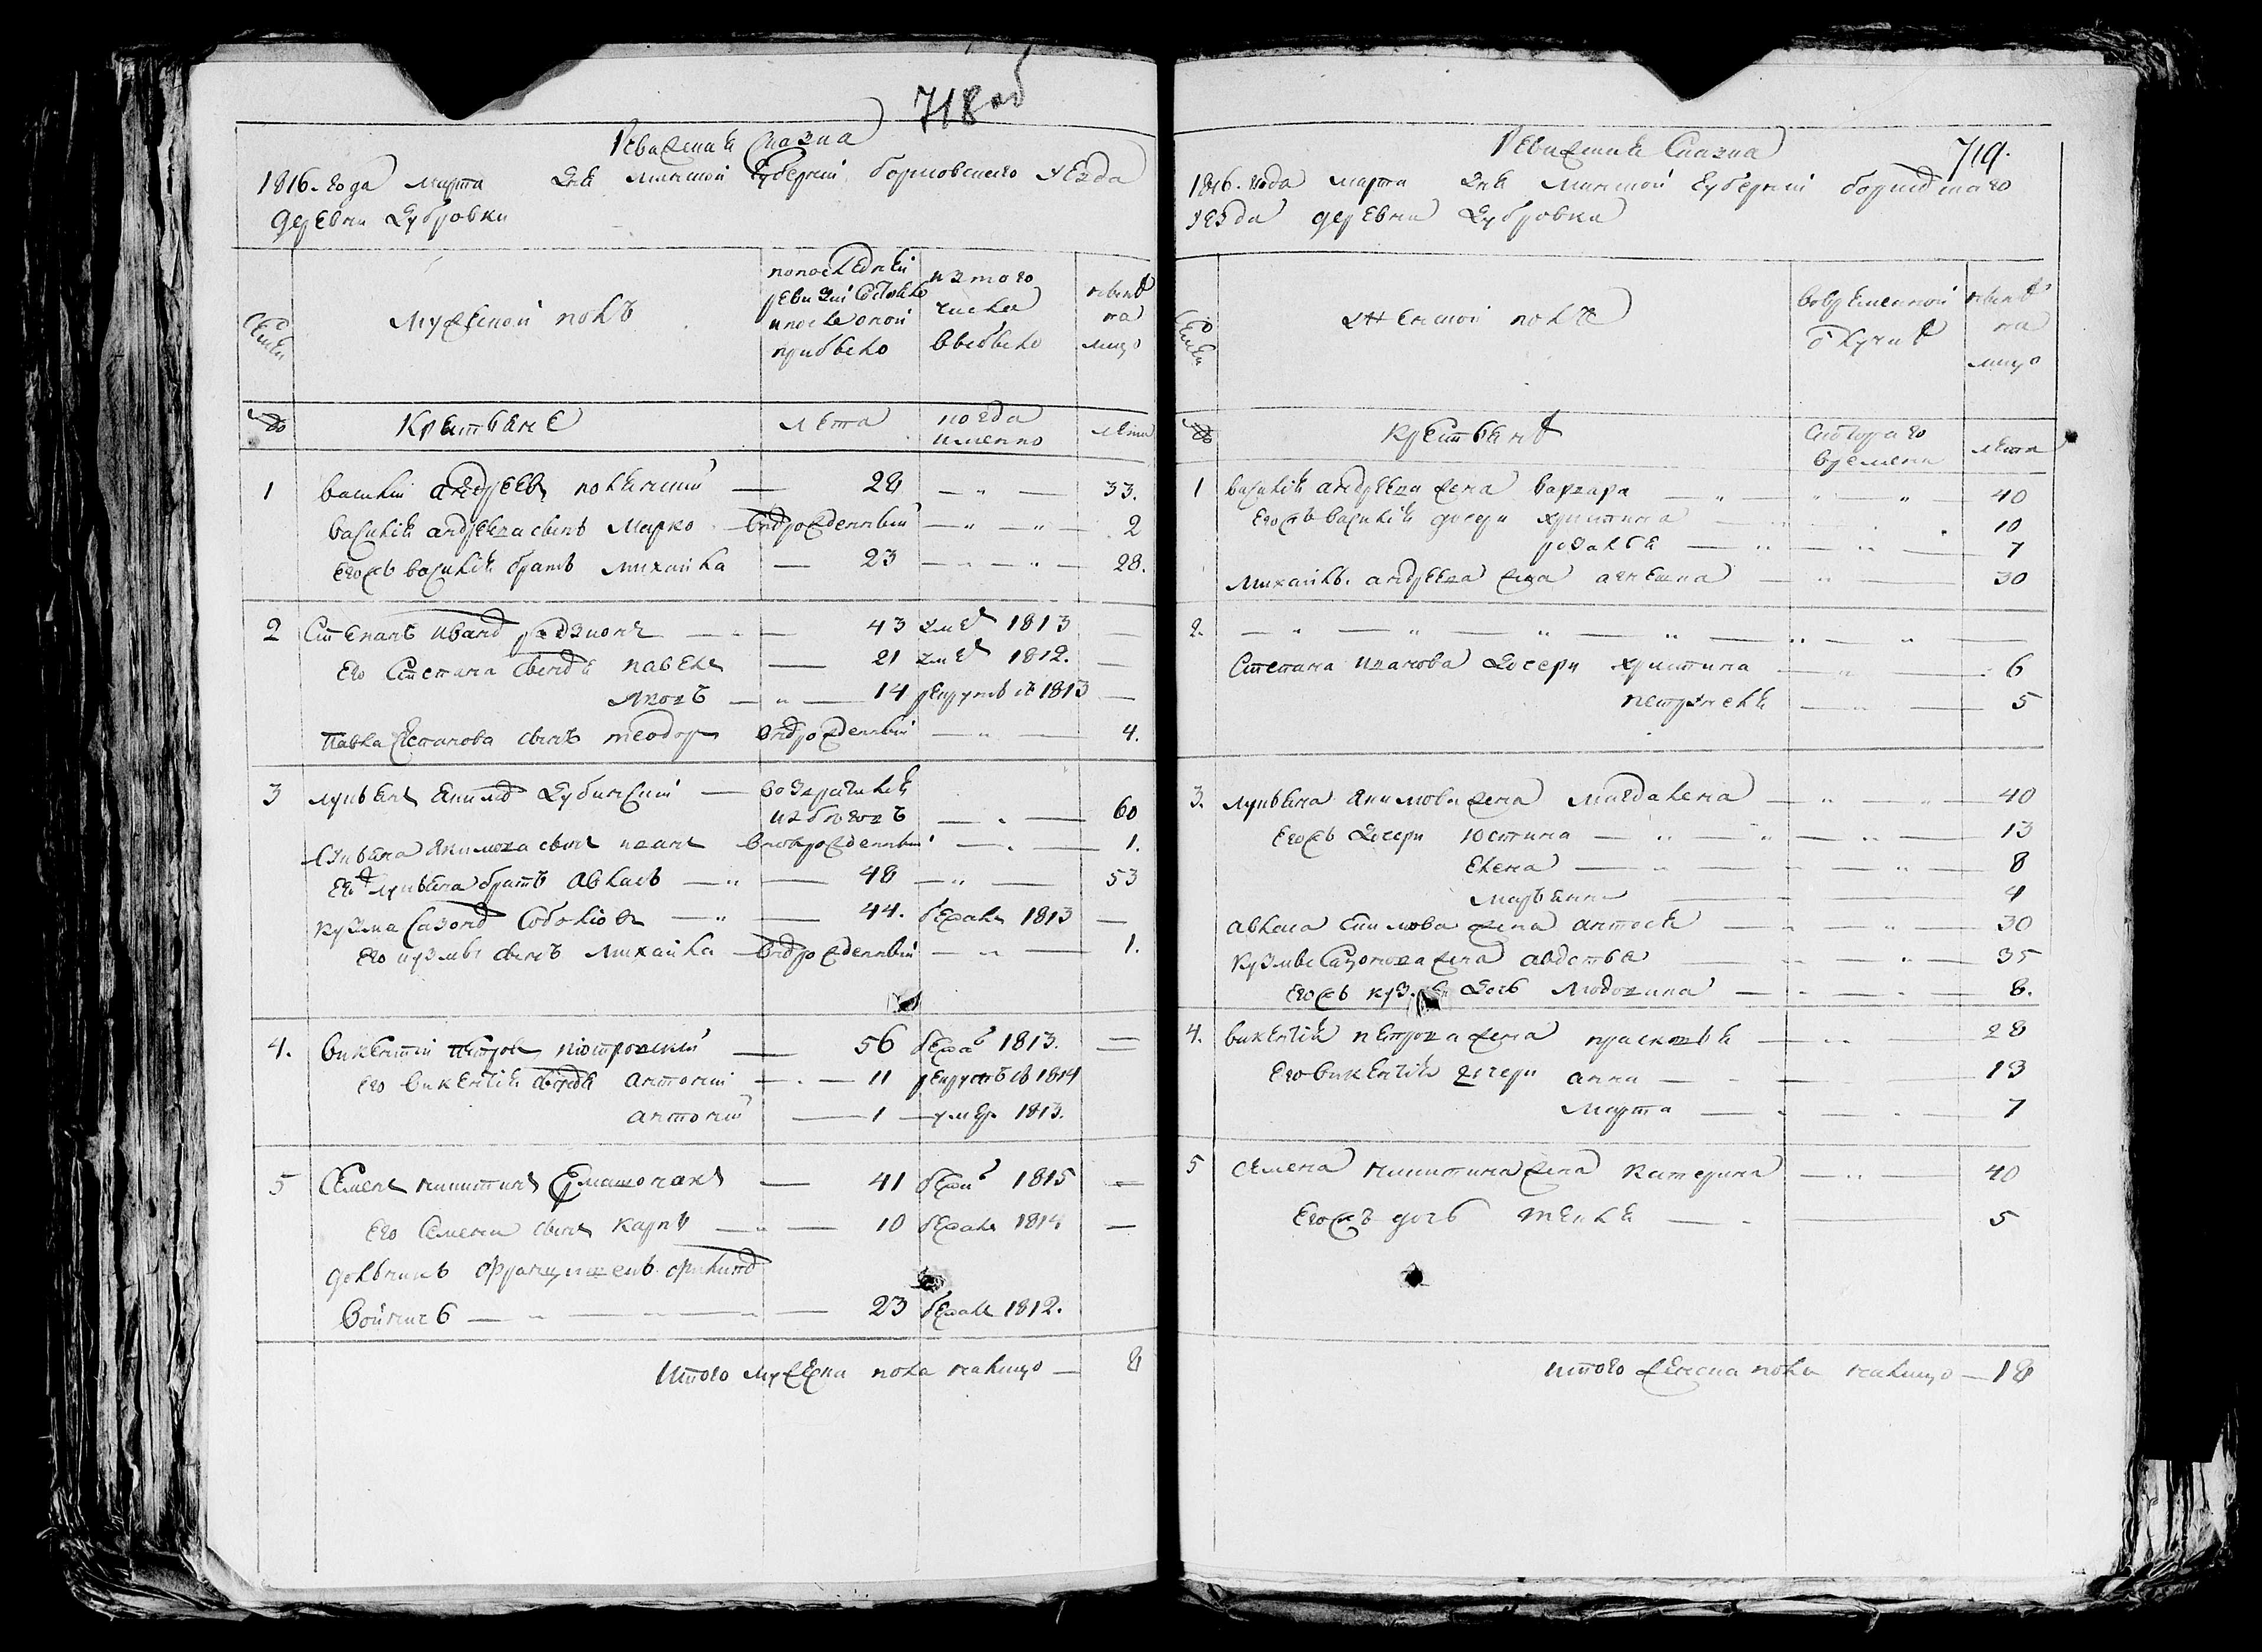 718 об
Ревижская Сказка
1816. года марта дня минской губернии борисовского уезда
деревни Дубровки
Семьи
мужеской полъ
попоследней ревизии состояло и после оной прибыло
из того числа выбыло
ныне на лицо
№
Крестьяне
лета
когда именно
лета
1 василий андреевъ — 28 — " — 33.
василия андреева сынъ Марко новорожденный — " — " — 2
егожъ василия братъ михайла — 23 — " — " — 28.
2 Степанъ ивановъ — 43 умеръ 1813 —
его Степана сыновья павелъ — 21 умеръ 1812. —
Яковъ — " — 14 рекрутъ съ 1813 —
павла Степанова сынъ теодоръ новорожденный — " — 4.
3 лукьянъ якимовъ Дубинский — возвратился
из бегов — " — 60
лукьяна якимова сынъ иванъ новорожденный — " — 1.
его лукьяна братъ авласъ — " — 48 — " — 53
кузма Сазоновъ — " — 44. бежалъ 1813 —
его кузмы сынъ михайла — новорожденный — " — 1.
4. викентий петровъ — 56 бежа 1813. —
его викентия сыновья антоний — " — 11 рекрутъ съ 1814
антоний — 1 — умер 1813.
5 Семенъ никитинъ — 41 бежа 1815 —
его Семена сынъ карпъ — " — 10 бежалъ 1814 —
францишекъ
Войничъ — " — " — 23 бежалъ 1812.
Итого мужеска пола налицо — 8
719.
Ревижская Сказка
1816. года марта дня минской губернии борисовского
уезда деревни Дубровки
Семьи
женской полъ
во временной отлучке
ныне на лицо
№
Крестьяне
с которого времени
лета
1 василия андреева жена варвара — " — " — 40
егожъ василия дочери христина — 10
розалья — " — " — 7
михайлы андреева жена агнешка — " — 30
2. — " — " — " — " — " — " —
Степана иванова дочери христина — " — 6
петрунеля — " — 5
3. лукьяна якимова жена магдалена — " — " — 40
егожъ дочери юстина — " — " — " — 13
елена — " — " — 8
марьянна — 4
авласа якимова жена антося — " — " — 30
кузмы Сазонова жена авдотья — " — " — 35
егожъ куз. дочь людовика — " — " — 8.
4. викентия петрова жена прасковья — " — 28
его викентия дочери анна — " — 13
марта — " — 7
5 Семена никитина жена катерина — " — 40
егожъ дочь текля — " — 5
итого женска пола налицо — 18